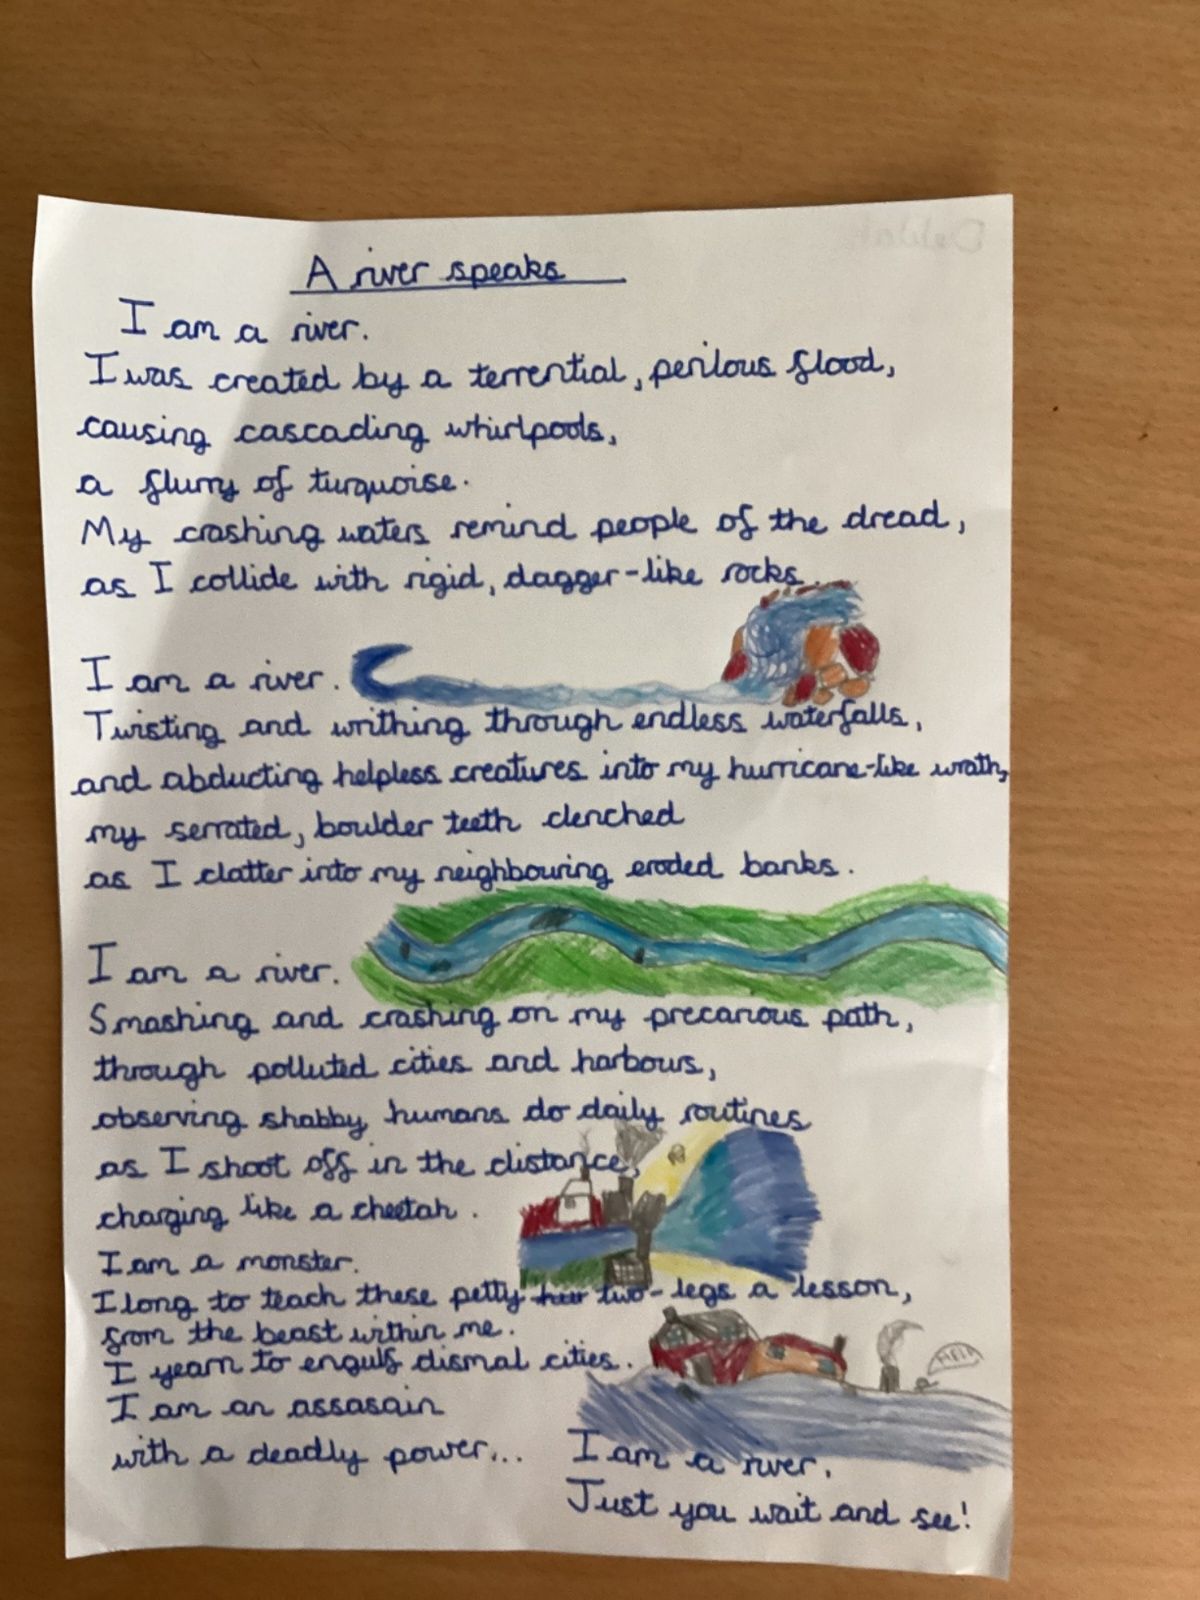 A river speaks
I am a river.
I was created by a terrential, perilous flood,
causing cascading whirlpools,
a flurry of turquoise.
My crashing waters remind people of the dread,
as I collide with rigid, dagger-like rocks.
I am a river.
Twisting and writhing through endless waterfalls,
and abducting helpless creatures into my hurricane-like wrath,
my serrated, boulder teeth clenched
as I clatter into my neighbouring eroded banks.
I am a river.
Smashing and crashing on my precarious path,
through polluted cities and harbours,
observing shabby humans do daily routines
as I shoot off in the distance,
charging like a cheetah.
I am a monster.
I long to teach these petty two-legs a lesson,
from the beast within me.
I yearn to engulf dismal cities.
HELP
I am an assasain
with a deadly power...
I am a river.
Just you wait and see!